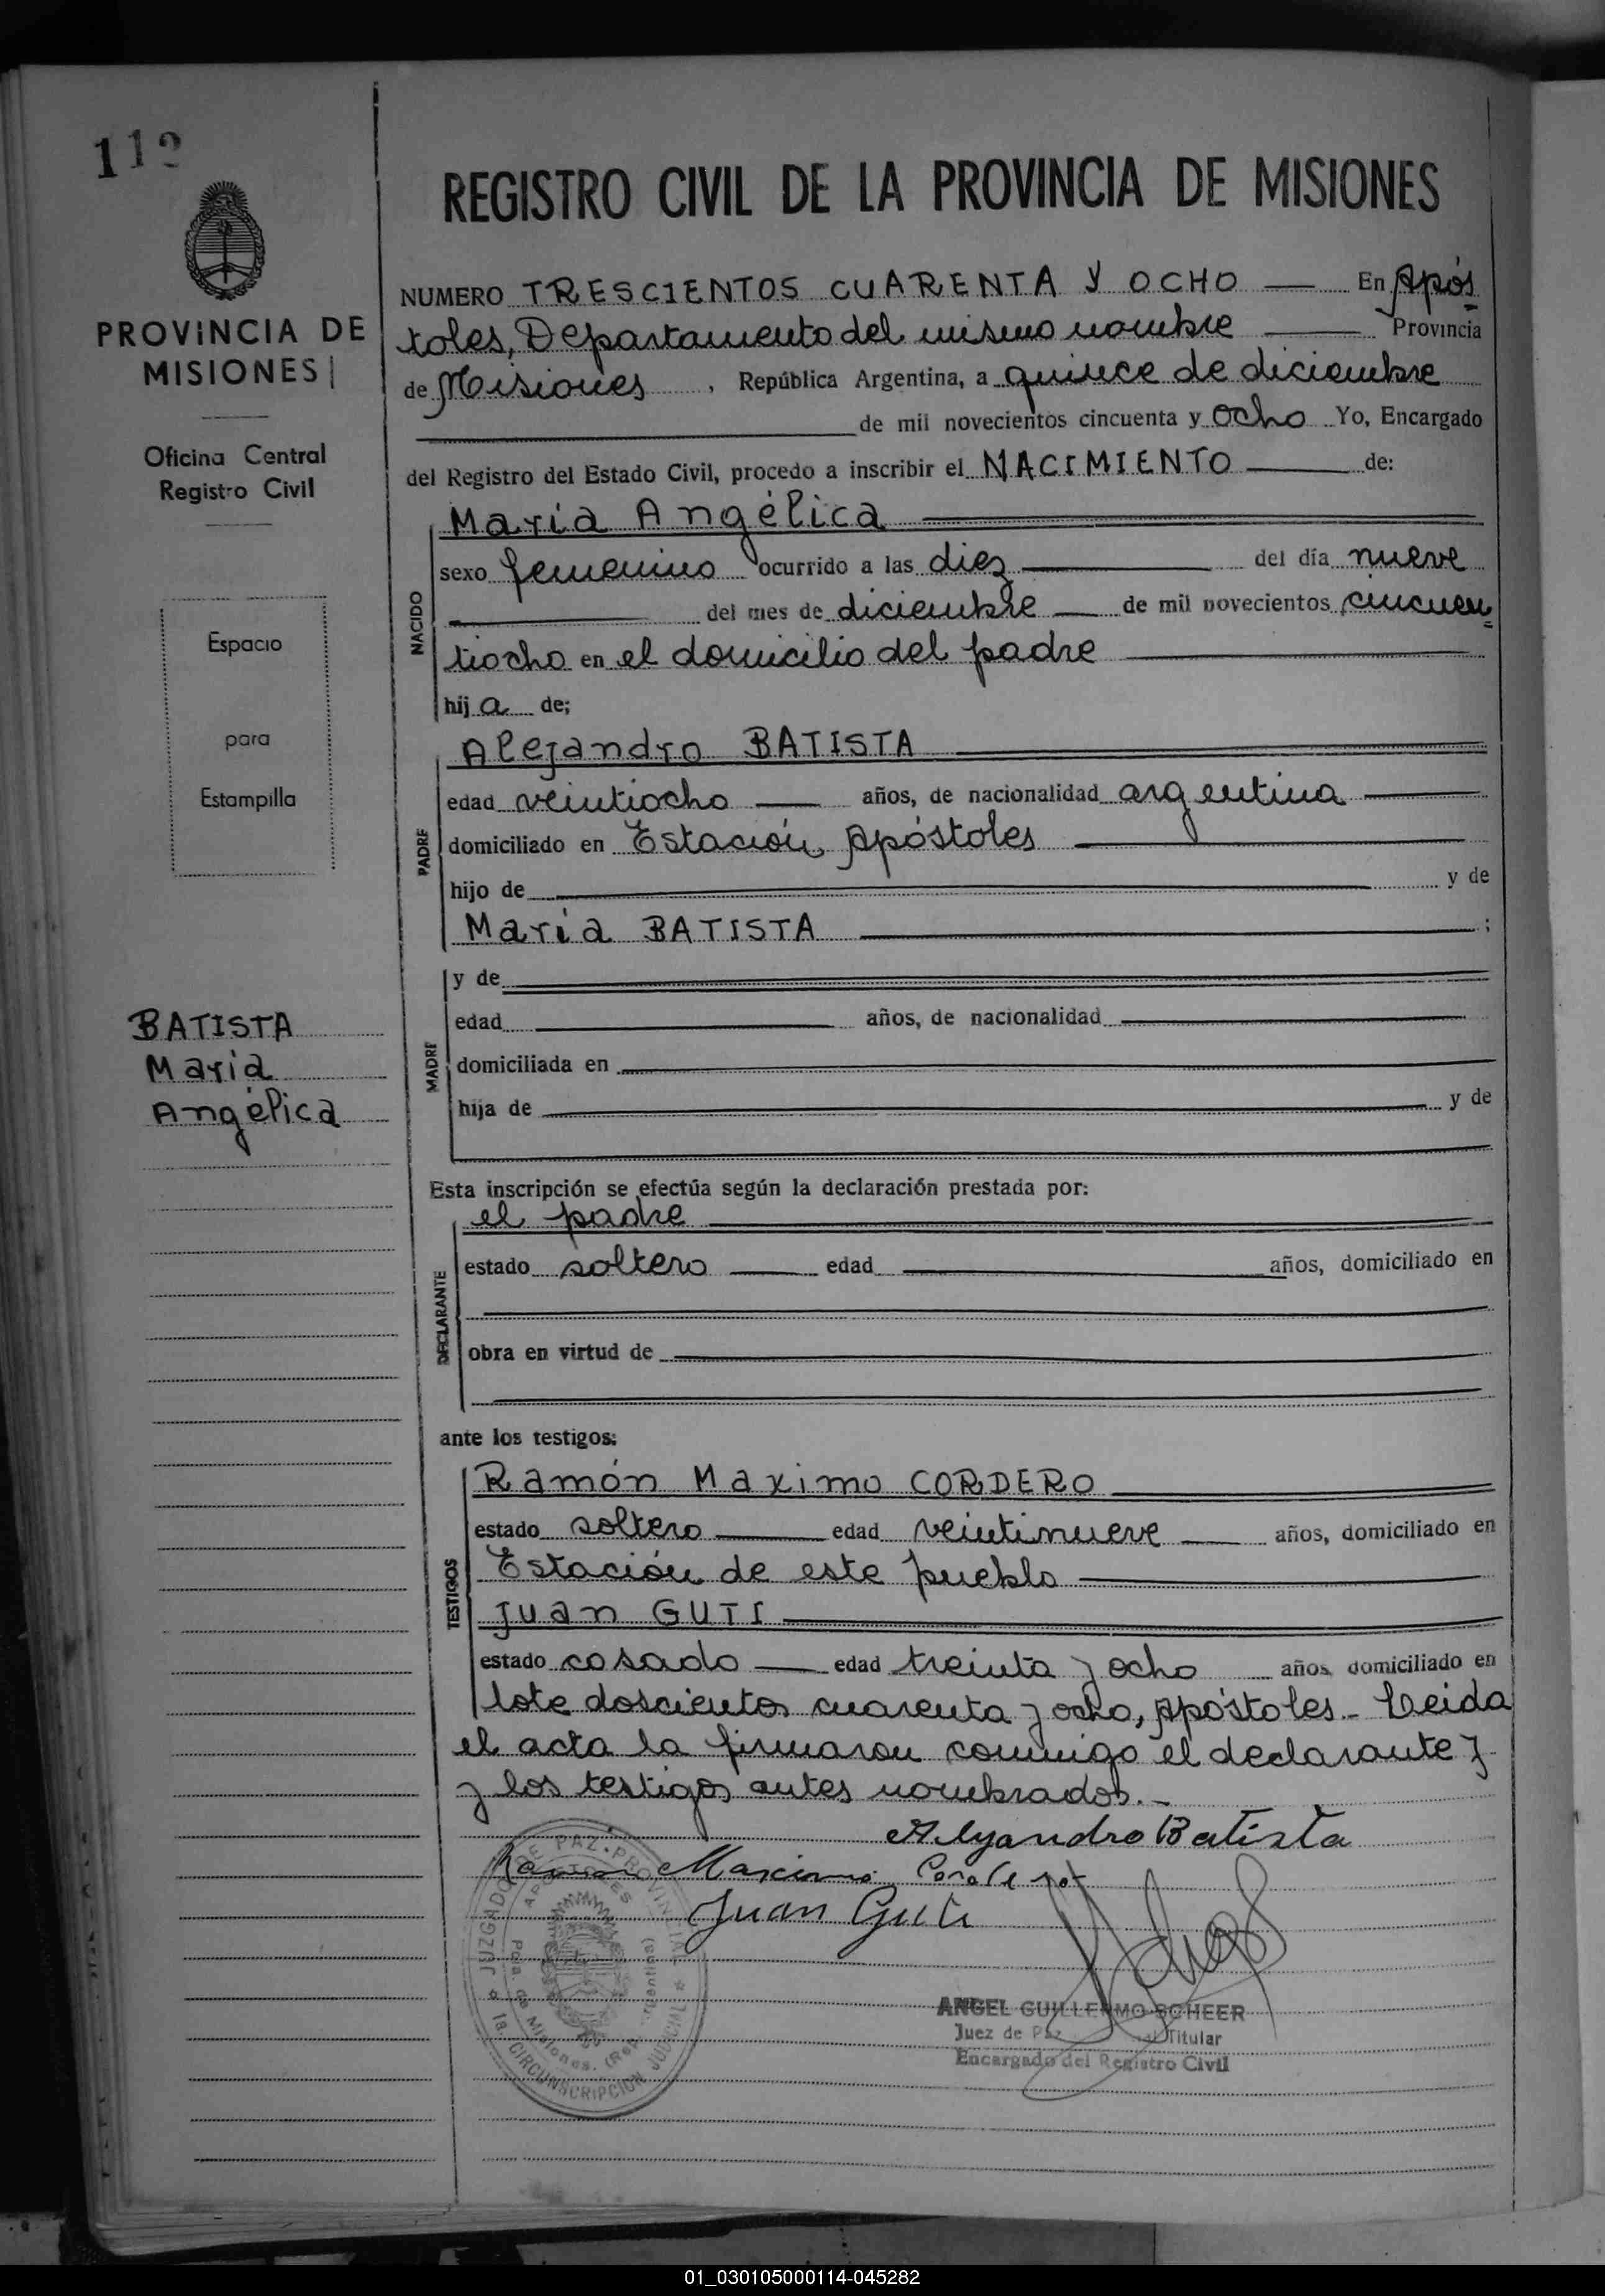 112
PROVINCIA DE
MISIONES
Oficina Central
Registro Civil
Espacio
para
Estampilla
BATISTA
María
Angélica
REGISTRO CIVIL DE LA PROVINCIA DE MISIONES
NUMERO TRESCIENTOS CUARENTA Y OCHO En Após
toles, Departamento del mismo nombre Provincia
de Misiones, República Argentina, a quince de diciembre
de mil novecientos cincuenta y ocho Yo, Encargado
del Registro del Estado Civil, procedo a inscribir el NACIMIENTO de:
NACIDO
María Angélica
sexo femenino ocurrido a las diez del día nueve
del mes de diciembre de mil novecientos cincuen
tiocho en el domicilio del padre
hija de;
PADRE
Alejandro BATISTA
edad veintiocho años, de nacionalidad argentina
domiciliado en Estación, Apóstoles
hijo de y de
María BATISTA ;
MADRE
y de
edad años, de nacionalidad
domiciliada en
hija de y de
Esta inscripción se efectúa según la declaración prestada por:
DECLARANTE
el padre
estado soltero edad años, domiciliado en
obra en virtud de
ante los testigos:
TESTIGOS
Ramón Maximo CORDERO
estado soltero edad veintinueve años, domiciliado en
Estación de este pueblo
Juan GUTI
estado casado edad treinta y ocho años domiciliado en
lote doscientos cuarenta y ocho, Apóstoles.- Leida
el acta la firmaron conmigo el declarante y
y los testigos antes nombrados.-
Alejandro Batista
Ramón Maximo
Juan Guti
JUZGADO DE PAZ - PROVINCIAL
APOSTOLES
Misiones. (Rep. Argentina)
1a. CIRCUNSCRIPCION JUDICIAL
ANGEL GUILLERMO SCHEER
Juez de Paz Titular
Encargado del Registro Civil
01_030105000114-045282